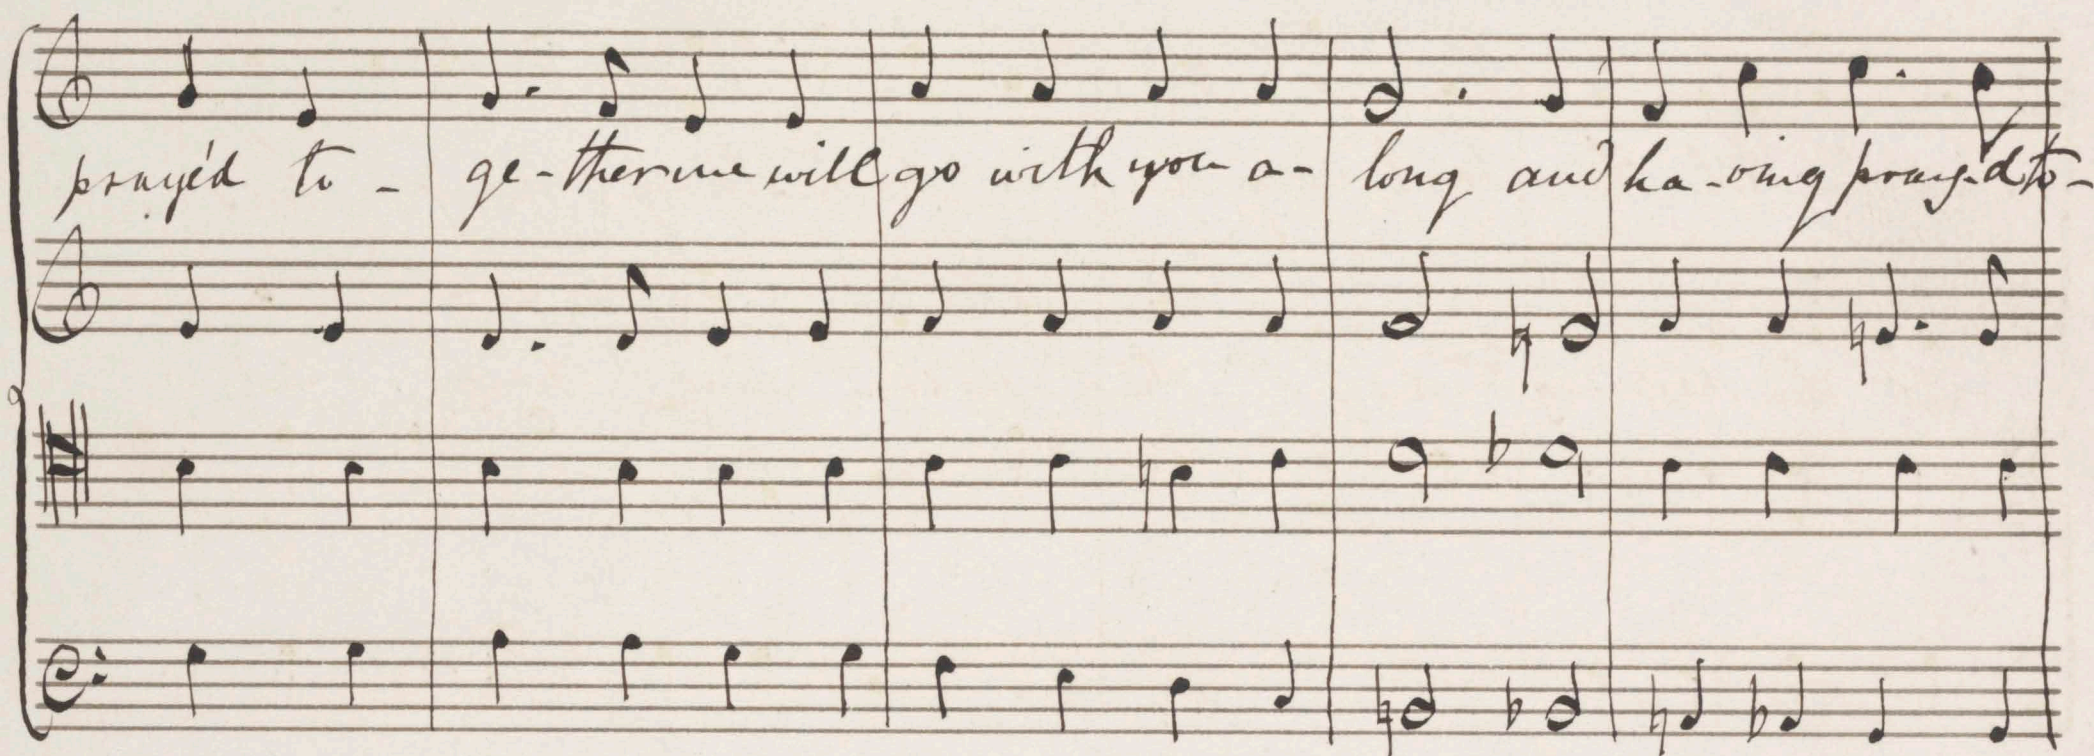 pray'd to - ge - ther we will go with you a - long and ha - ving pray - d to -